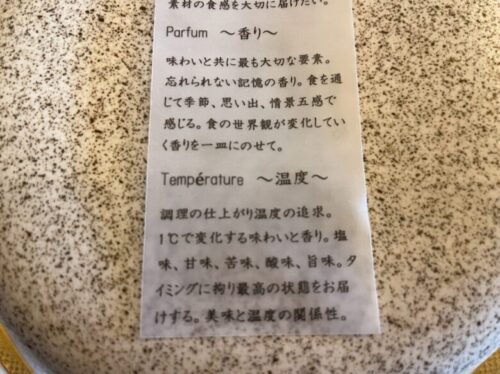 素材の食感を大切に届けたい。
Parfum ～香り～
味わいと共に最も大切な要素。
忘れられない記憶の香り。食を通
じて季節、思い出、情景五感で
感じる。食の世界観が変化してい
く香りを一皿にのせて。
Température ～温度～
調理の仕上がり温度の追求。
1℃で変化する味わいと香り。塩
味、甘味、苦味、酸味、旨味。タ
イミングに拘り最高の状態をお届
けする。美味と温度の関係性。